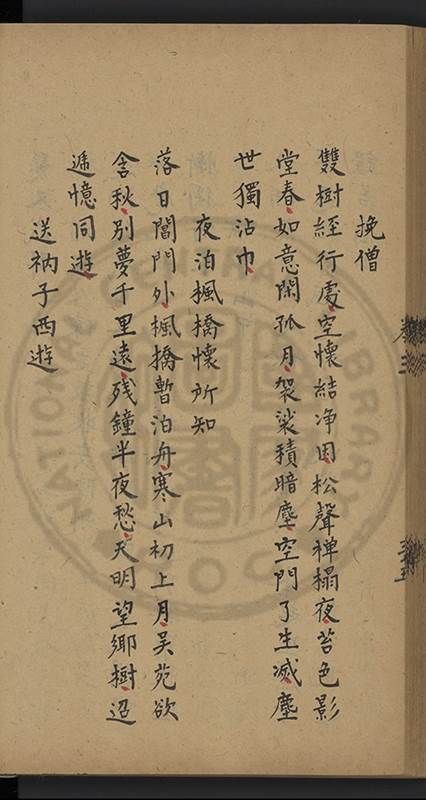 挽僧
雙樹經行處空懷結净因松聲禅榻夜苔色影
堂春如意閑孤月袈裟積暗塵空門了生滅塵
世獨沾巾
夜泊楓橋懷所知
落日閶門外楓橋暫泊舟寒山初上月吴苑欲
含秋别夢千里遠残鐘半夜愁天明望鄉樹迢
遞憶同遊
送衲子西遊